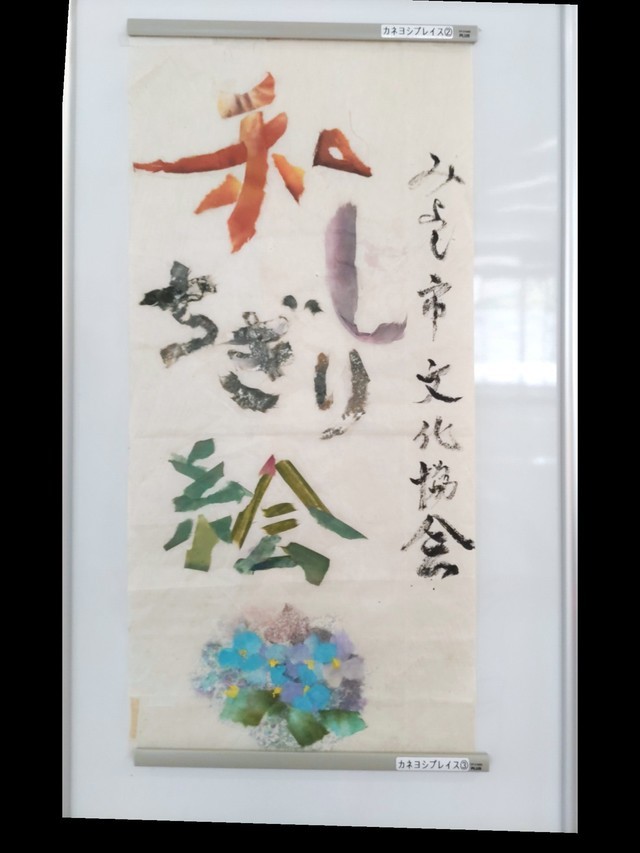 カネヨシプレイス②
みよし市文化協会
和し
ちぎり
絵
カネヨシプレイス③